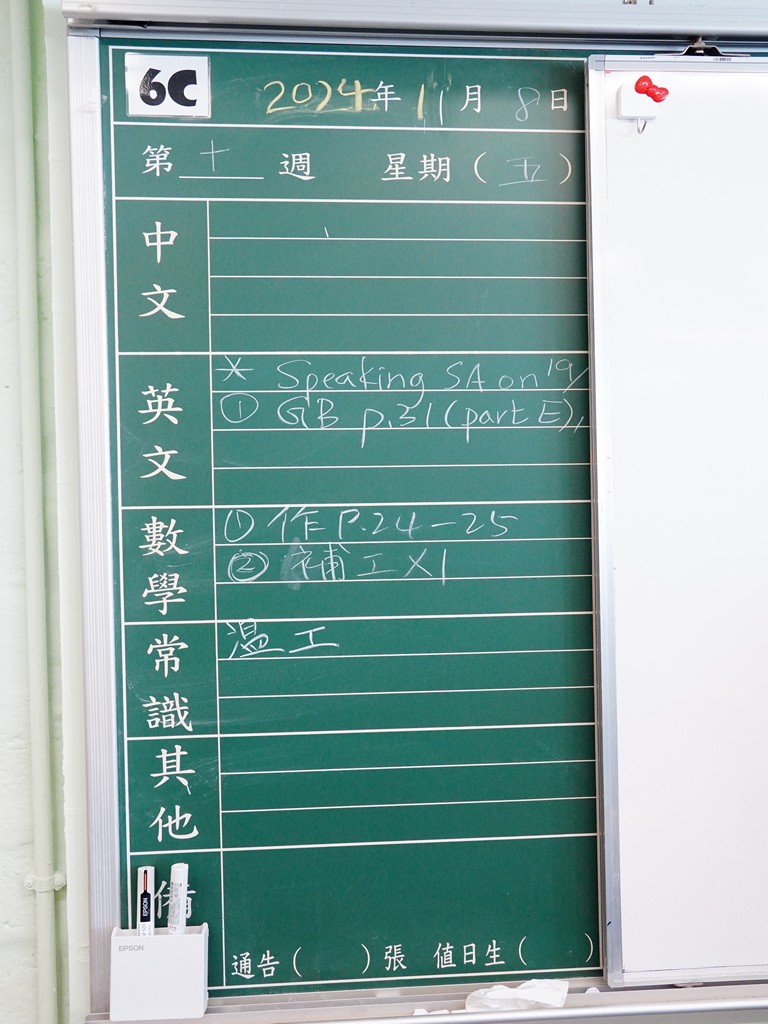 6C
2024年11月8日
第十週 星期(五)
中文
英文
* Speaking SA on 19/
① GB p.31 (part E),
數學
① 作 P.24-25
② 補工X1
常識
溫工
其他
備
通告( )張 值日生( )
EPSON
EPSON